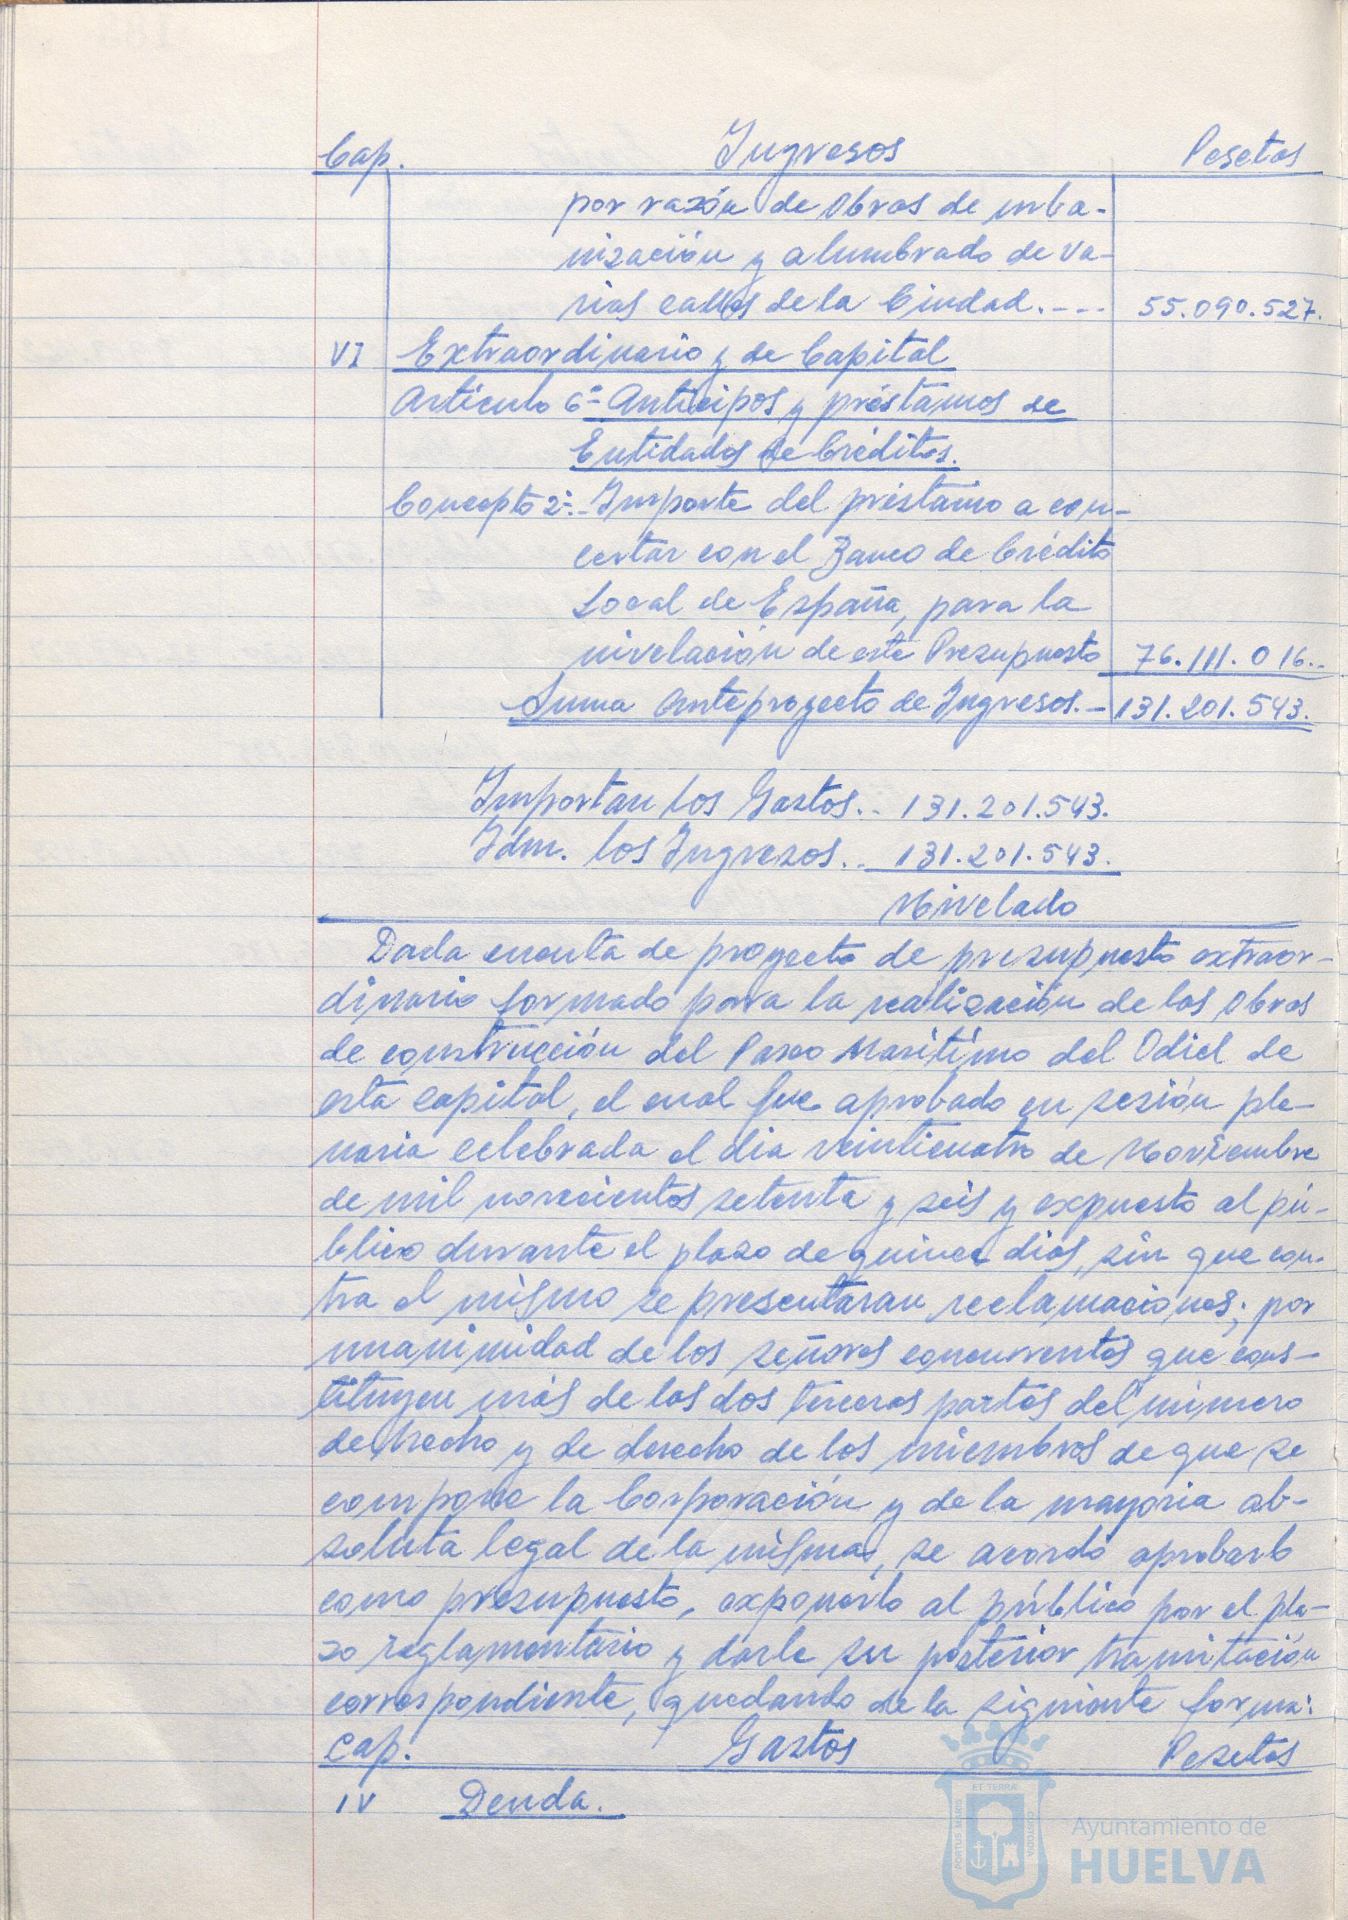 Cap. Ingresos Pesetas
por razón de Obras de urba-
nización y alumbrado de va-
rias calles de la Ciudad.--- 55.090.527.
VI Extraordinario y de Capital
Artículo 6º- Anticipos y préstamos de
Entidades de Créditos.
Concepto 2º.- Importe del préstamo a con-
certar con el Banco de Crédito
Local de España, para la
nivelación de este Presupuesto 76.111.016.-
Suma Anteproyecto de Ingresos.- 131.201.543.
Importan los Gastos.. 131.201.543.
Idm. los Ingresos.. 131.201.543.
Nivelado
Dada cuenta de proyecto de presupuesto extraor-
dinario formado para la realización de las Obras
de construcción del Paseo Marítimo del Odiel de
esta capital, el cual fue aprobado en sesión ple-
naria celebrada el dia veinticuatro de Noviembre
de mil novecientos setenta y seis y expuesto al pú-
blico durante el plazo de quince dias, sin que con-
tra el mismo se presentaran reclamaciones; por
unanimidad de los señores concurrentes que cons-
tituyen más de las dos terceras partes del número
de hecho y de derecho de los miembros de que se
compone la Corporación y de la mayoria ab-
soluta legal de la misma, se acordó aprobarlo
como presupuesto, exponerlo al público por el pla-
zo reglamentario y darle su posterior tramitación
correspondiente, quedando de la siguiente forma:
Cap. Gastos Pesetas
IV Deuda.
ET TERRA
PORTUS MARIS
CUSTODIA
Ayuntamiento de
HUELVA